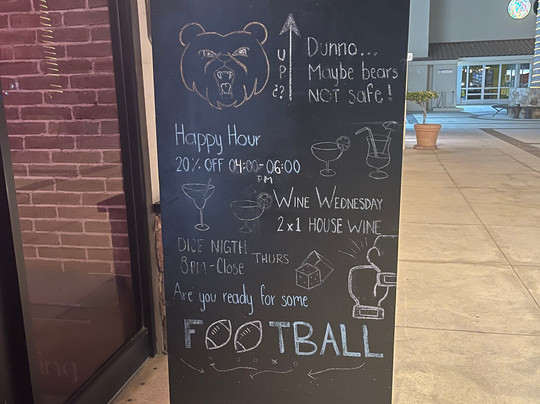 UP
¿?
Dunno...
Maybe bears
NOT safe!
Happy Hour
20% OFF 04:00-06:00
PM
WINE WEDNESDAY
2x1 HOUSE WINE
DICE NIGTH THURS
8PM-Close
Are you ready for some
FOOTBALL